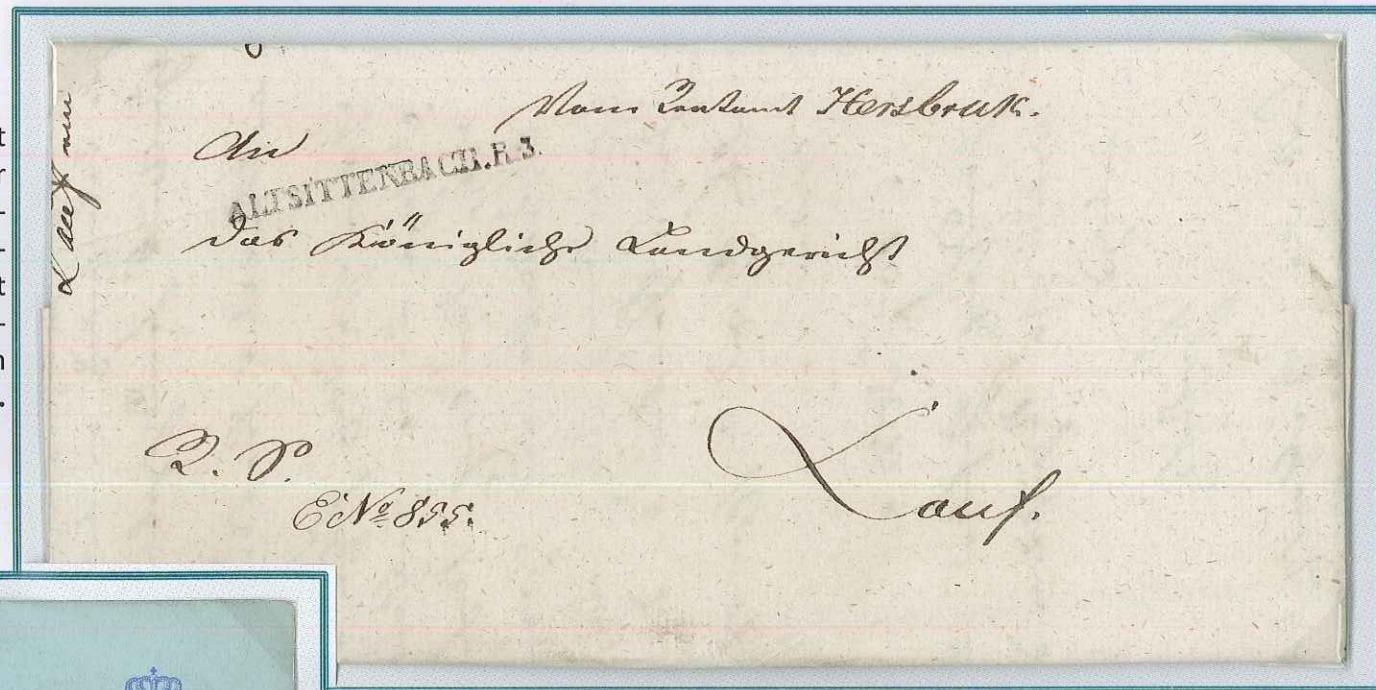 Vom Rentamt Hersbruk.
An
ALTSITTENBACH.R.3.
das Königliche Landgericht
R. S.
E № 855.
Lauf.